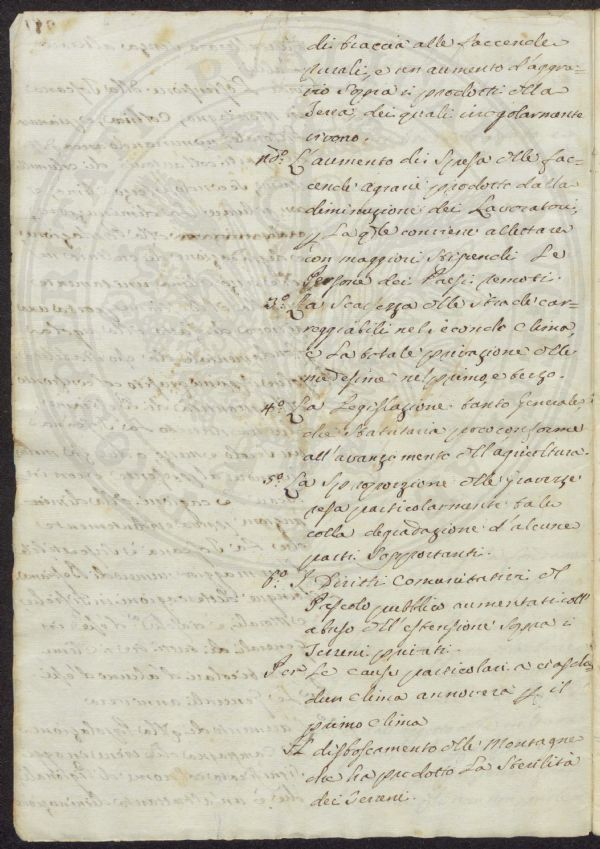 di braccia alle faccende
rurali, e un aumento d'aggra-
vio sopra i prodotti della
Terra dei quali irregolarmente
vivono.
2do. L'aumento di spesa alle fac-
cende agrarie prodotto dalla
diminuzione dei Lavoratori,
p La qle conviene allettare
con maggiori stipendi Le
Persone dei Paesi remoti.
3.o La Scarsezza delle strade car-
reggiabili nel secondo Clima,
e La totale privazione delle
medesime nel primo, e terzo.
4.o La Legislazione tanto Generale
che Statutaria poco conforme
all'avanzamento dell'agricultura.
5.o La Sproporzione delle gravezze
resa particolarmente tale
colla degradazione d'alcune
parti Sopportanti.
6.o I Diritti Comunitativi di
Pascolo pubblico aumentati coll'
abuso dell'estensione sopra i
Terreni privati.
Per Le cause particolari a ciasche-
dun Clima annovera p il
primo Clima
Il disboscamento delle Montagne
che ha prodotto La Sterilità
dei Terreni.